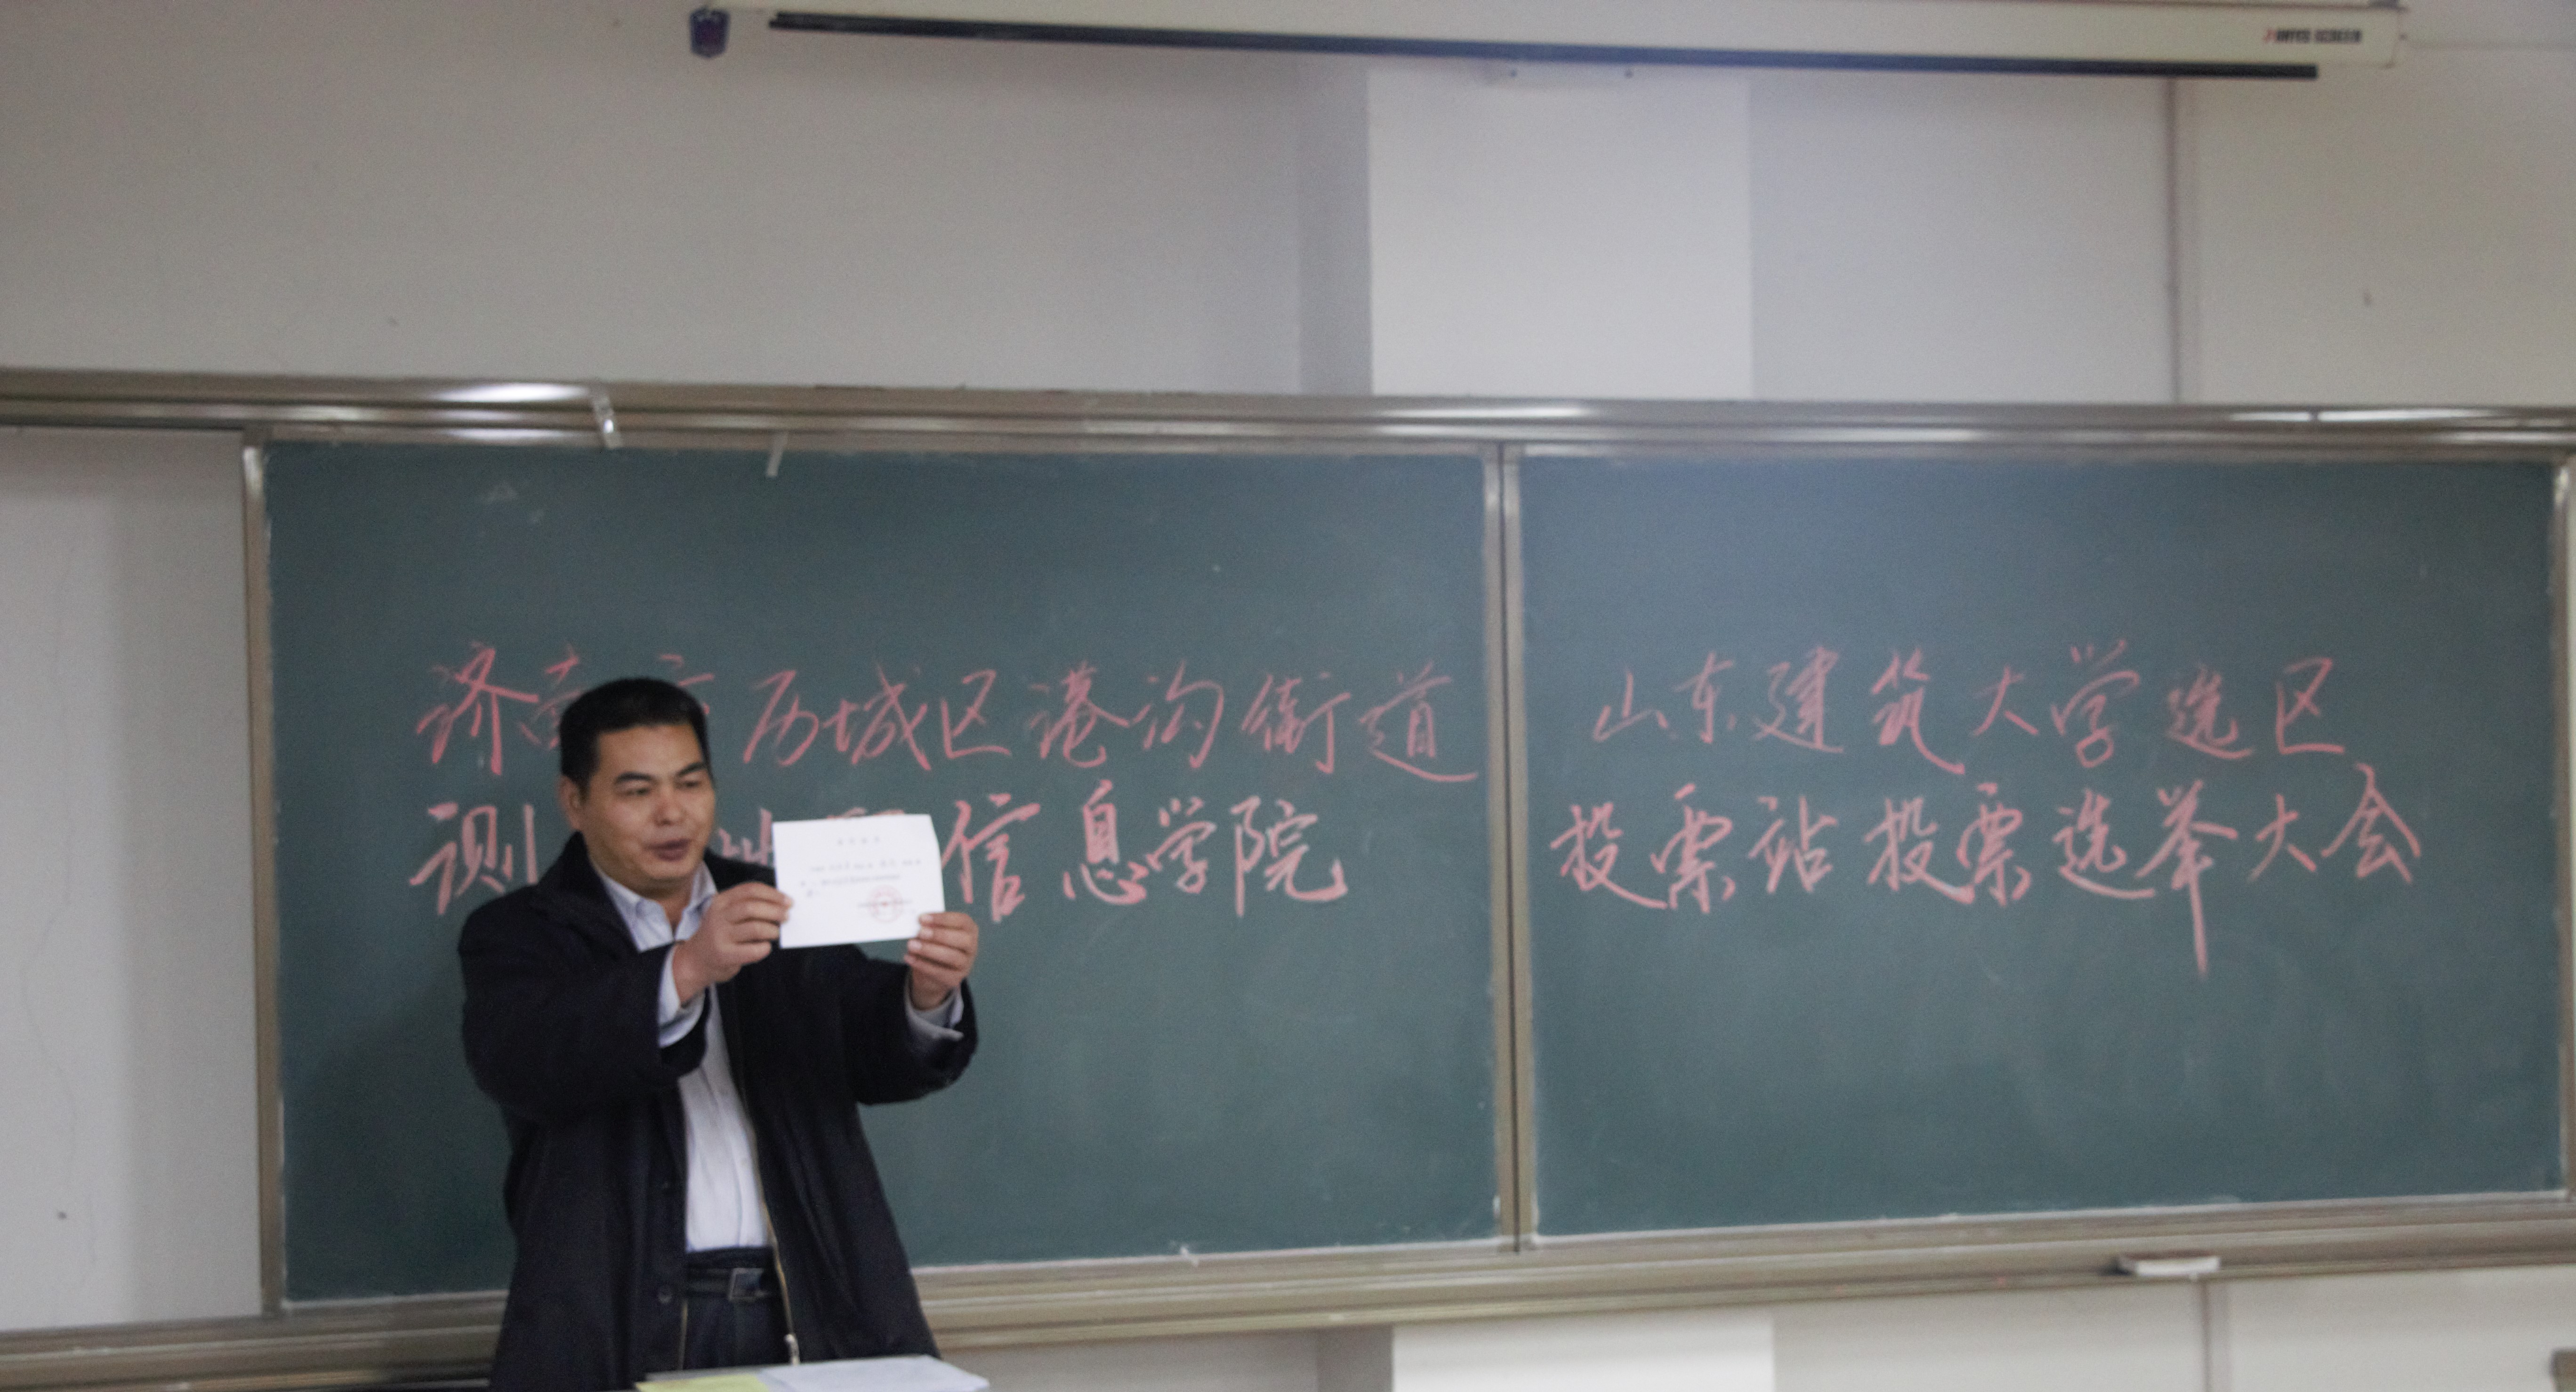 济南市历城区港沟街道 山东建筑大学选区
测 地理信息学院 投票站投票选举大会